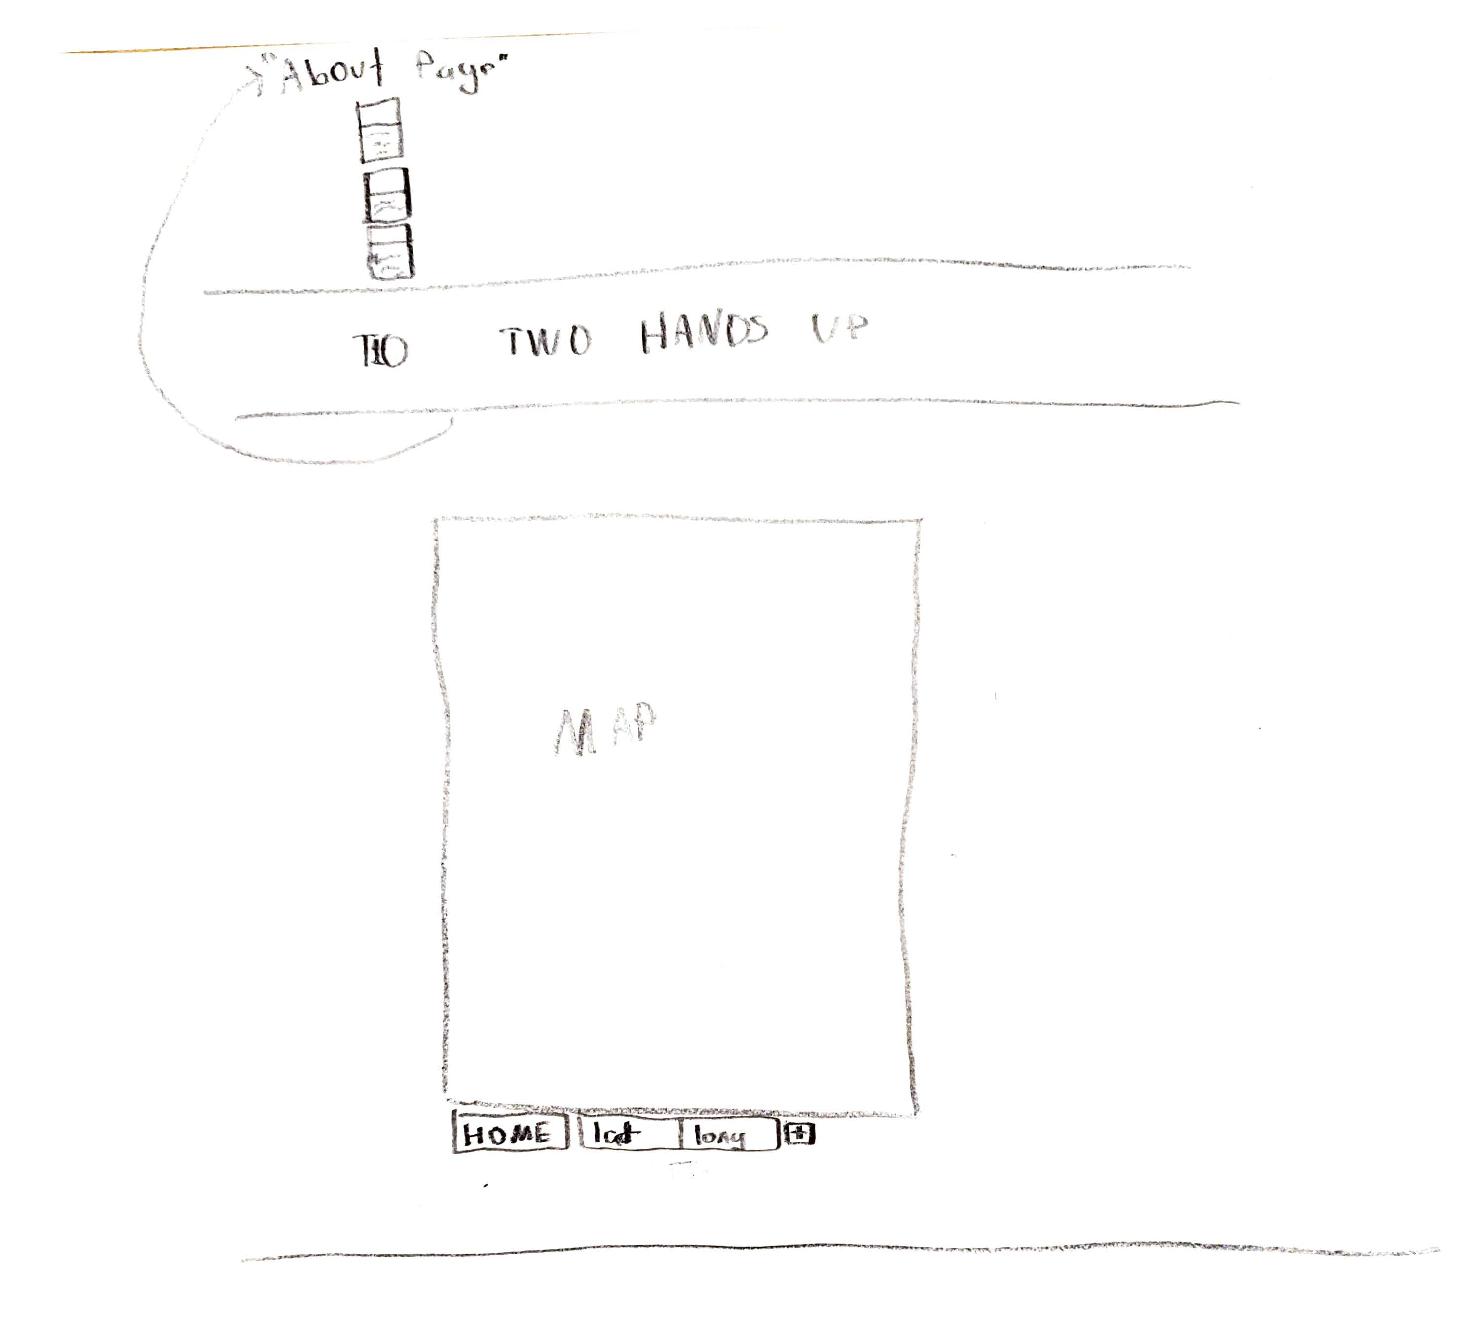 "About Page"
TWO HANDS UP
MAP
HOME lat long +